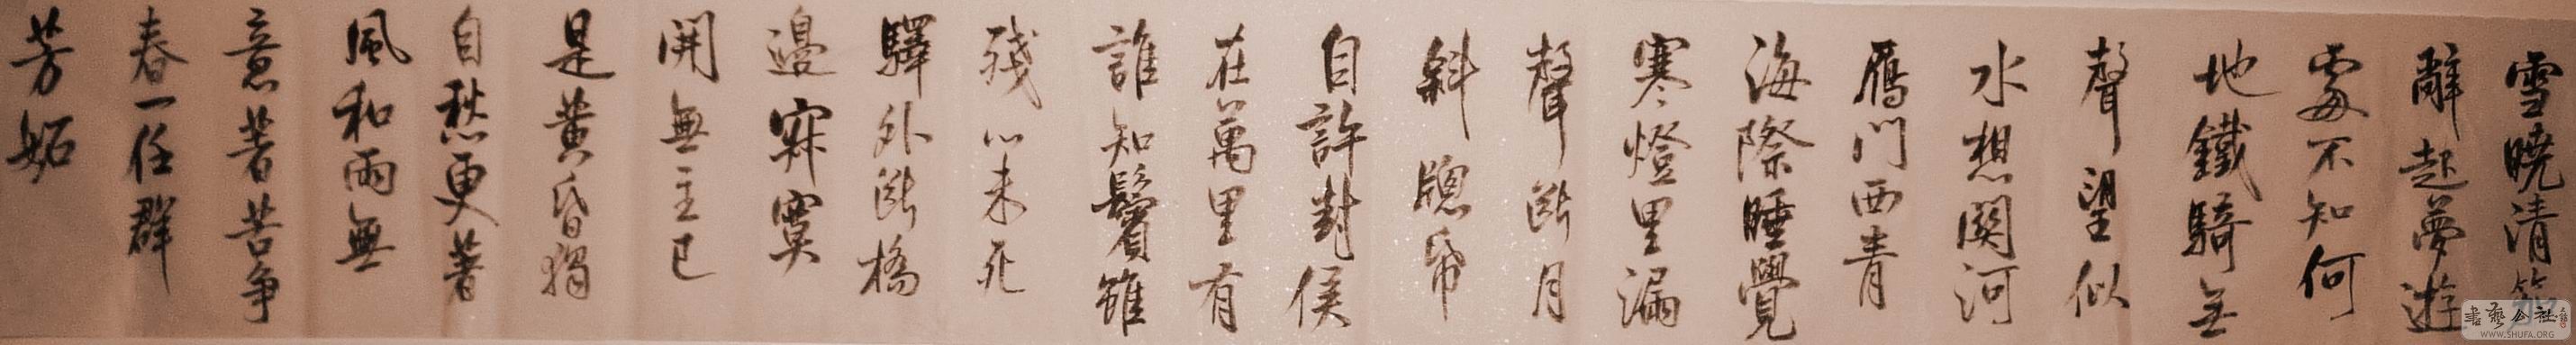 雪曉清笳
辭起夢遊
處不知何
地鐵騎无
聲望似
水想関河
鴈門西青
海際睡覺
寒燈里漏
聲斷月
斜牕帋
自許封侯
在萬里有
誰知鬢雖
殘心未死
驛外斷橋
邊寂寞
開無主已
是黃昏獨
自愁更著
風和雨無
意著苦争
春一任群
芳妬
書藝公社
WWW.SHUFA.ORG